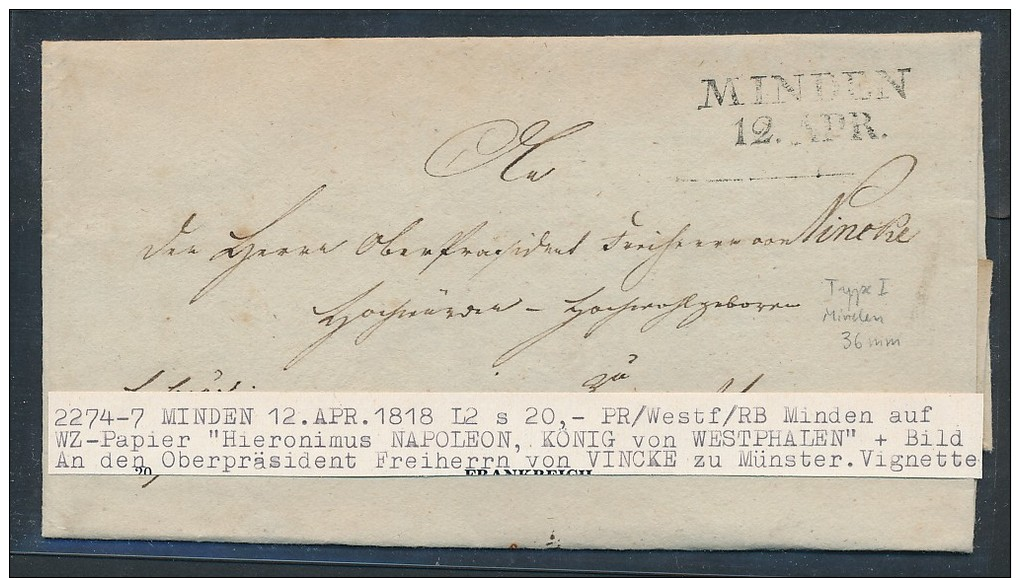 MINDEN
12. APR.
An
den Herrn Oberpräsident Freiherrn von Vincke
Hochwürden – Hochwohlgeboren
Type I
Minden
36 mm
zu
2274-7 MINDEN 12.APR.1818 L2 s 20,- PR/Westf/RB Minden auf
WZ-Papier "Hieronimus NAPOLEON, KÖNIG von WESTPHALEN" + Bild
An den Oberpräsident Freiherrn von VINCKE zu Münster. Vignette
20,
FRANKREICH